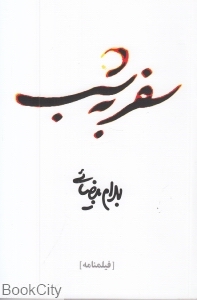 سفر به شب
بهرام بیضائی
[فیلمنامه]
BookCity